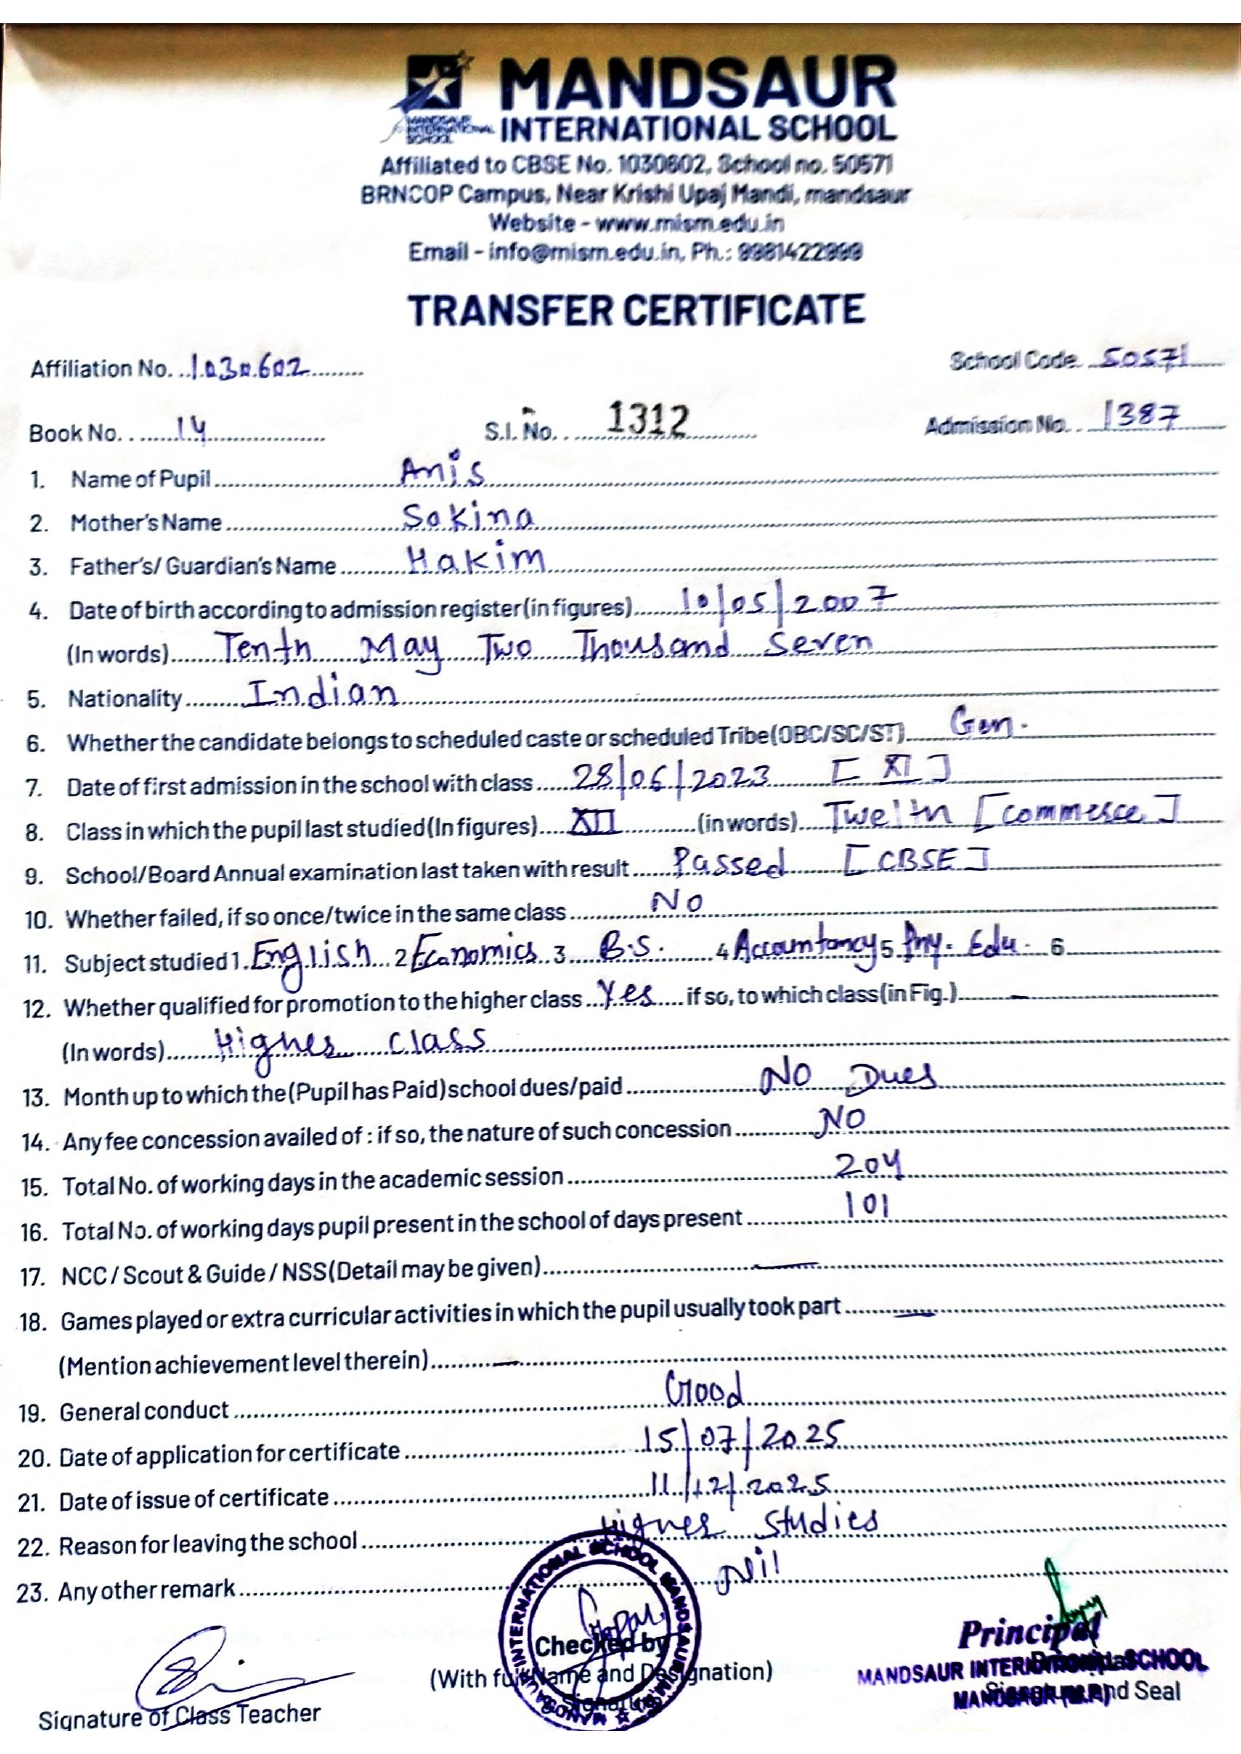 MANDSAUR
INTERNATIONAL SCHOOL
Affiliated to CBSE No. 1030602, School no. 50571
BRNCOP Campus, Near Krishi Upaj Mandi, mandsaur
Website - www.mism.edu.in
Email - info@mism.edu.in, Ph.:
TRANSFER CERTIFICATE
Affiliation No. 1030602 School Code 50571
Book No. 14 S.I. No. 1312 Admission No. 1387
1. Name of Pupil Anis
2. Mother's Name Sakina
3. Father's/ Guardian's Name Hakim
4. Date of birth according to admission register(in figures) 10/05/2007
(In words) Tenth May Two Thousand Seven
5. Nationality Indian
6. Whether the candidate belongs to scheduled caste or scheduled Tribe(OBC/SC/ST) Gen.
7. Date of first admission in the school with class 28/06/2023 [XI]
8. Class in which the pupil last studied(In figures) XII (in words) Twelth [Commerce]
9. School/Board Annual examination last taken with result Passed [CBSE]
10. Whether failed, if so once/twice in the same class No
11. Subject studied 1. English 2 Economics 3 B.S. 4 Accountancy 5 Phy. Edu. 6
12. Whether qualified for promotion to the higher class Yes if so, to which class(in Fig.) —
(In words) Higher Class
13. Month up to which the(Pupil has Paid)school dues/paid NO Dues
14. Any fee concession availed of : if so, the nature of such concession NO
15. Total No. of working days in the academic session 204
16. Total No. of working days pupil present in the school of days present 101
17. NCC / Scout & Guide / NSS(Detail may be given) —
18. Games played or extra curricular activities in which the pupil usually took part —
(Mention achievement level therein) —
19. General conduct Good
20. Date of application for certificate 15/07/2025
21. Date of issue of certificate 11/12/2025
22. Reason for leaving the school Higher Studies
23. Any other remark Nil
Checked by
(With full Name and Designation)
Signature of Class Teacher
Principal
MANDSAUR INTERNATIONAL SCHOOL
MANDSAUR (M.P.)
and Seal